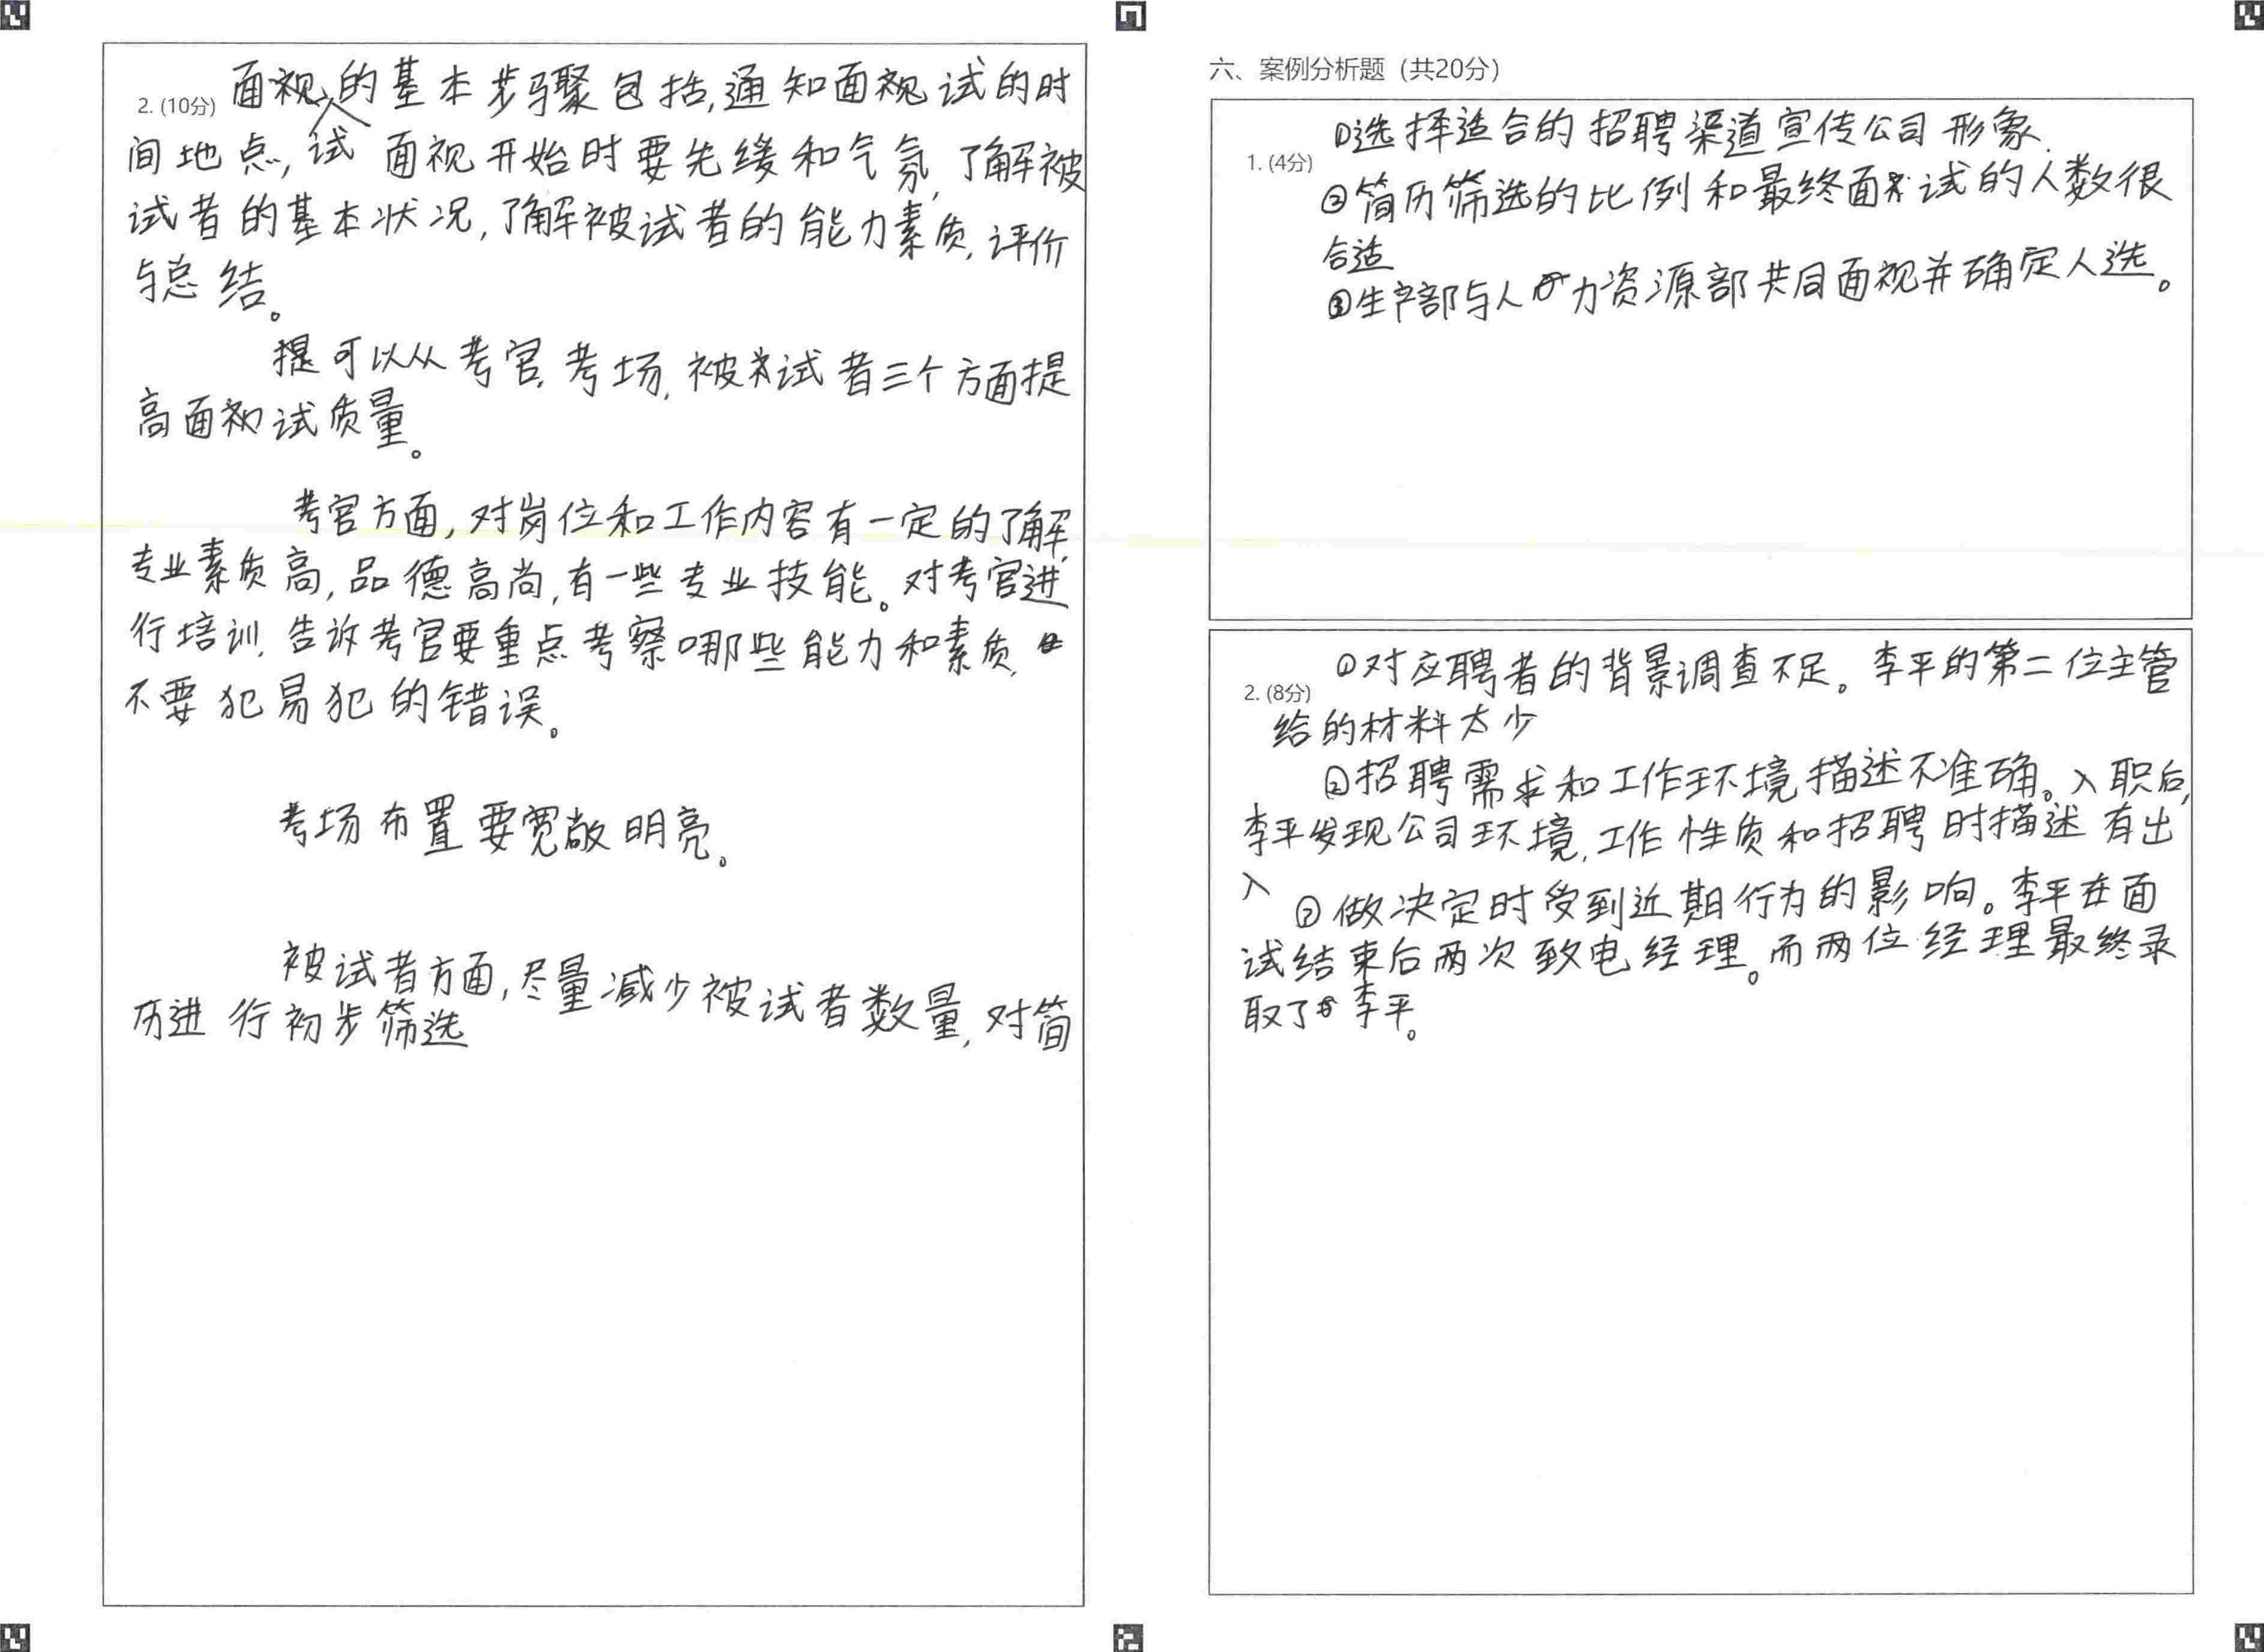 2. (10分) 面视试的基本步骤包括,通知面视试的时
间地点,面视开始时要先缓和气氛,了解被
试者的基本状况,了解被试者的能力素质,评价
与总结。
提可以从考官,考场,被试者三个方面提
高面试质量。
考官方面,对岗位和工作内容有一定的了解,
专业素质高,品德高尚,有一些专业技能。对考官进
行培训,告诉考官要重点考察哪些能力和素质,
不要犯易犯的错误。
考场布置要宽敞明亮。
被试者方面,尽量减少被试者数量,对简
历进行初步筛选
六、案例分析题 (共20分)
①选择适合的招聘渠道宣传公司形象.
1. (4分)
②简历筛选的比例和最终面试的人数很
合适
③生产部与人力资源部共同面视并确定人选。
①对应聘者的背景调查不足。李平的第二位主管
2. (8分)
给的材料太少
②招聘需求和工作环境描述不准确。入职后,
李平发现公司环境,工作性质和招聘时描述有出
入
③做决定时受到近期行为的影响。李平在面
试结束后两次致电经理。而两位经理最终录
取了李平。